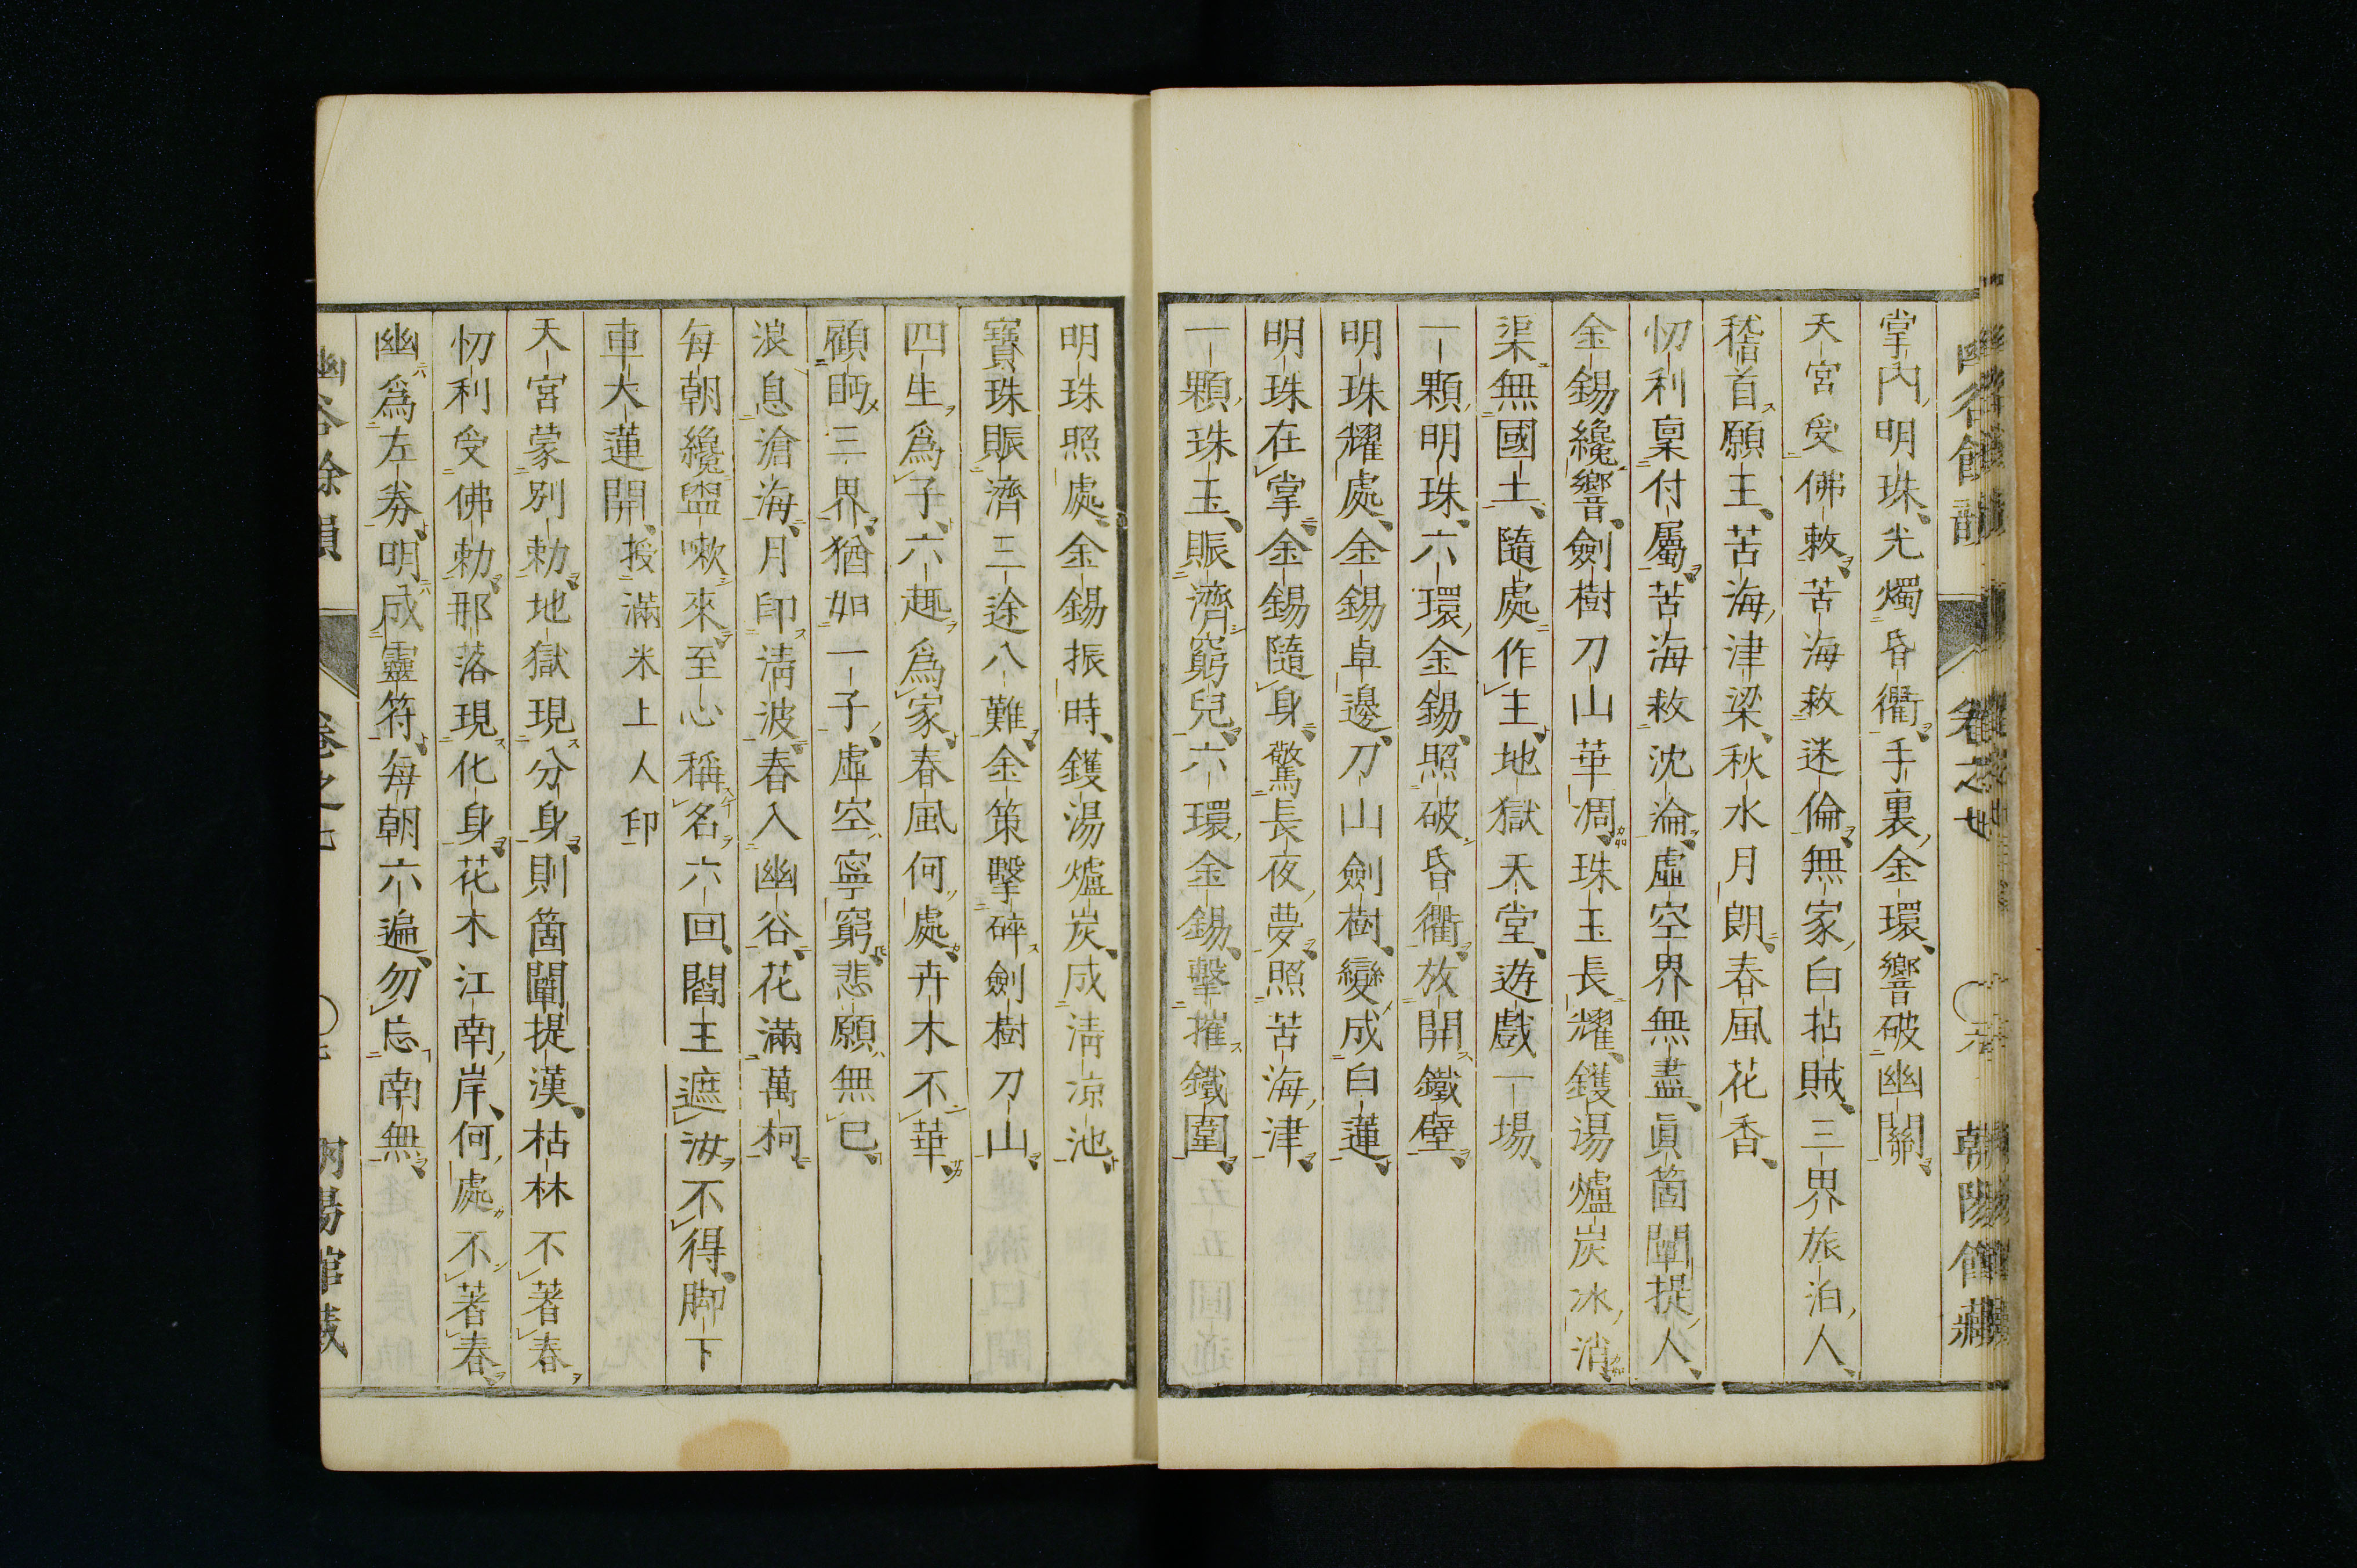 掌內明珠光燭昏衢手裏金環響破幽關
天宮受佛敕苦海救迷倫無家白拈賊三界旅泊人
稽首願王苦海津梁秋水月朗春風花香
忉利稟付屬苦海救沈淪虛空界無盡眞箇闡提人
金錫纔響劍樹刀山華凋珠玉長耀鑊湯爐炭冰消
渠無國土隨處作主地獄天堂遊戲一場
一顆明珠六環金錫照破昏衢放開鐵壁
明珠耀處金錫卓邊刀山劍樹變成白蓮
明珠在掌金錫隨身驚長夜夢照苦海津
一顆珠玉賑濟窮兒六環金錫擊摧鐵圍
明珠照處金錫振時鑊湯爐炭成淸凉池
寶珠賑濟三途八難金策擊碎劍樹刀山
四生爲子六趣爲家春風何處卉木不華
顧眄三界猶如一子虛空寧窮悲願無已
浪息滄海月印淸波春入幽谷花滿萬柯
每朝纔盥嗽來至心稱名六回閻王遮汝不得脚下
車大蓮開授滿米上人印
天宮蒙別勅地獄現分身則箇闡提漢枯林不著春
忉利受佛勅那落現化身花木江南岸何處不著春
幽爲左券明成靈符每朝六遍勿忘南無